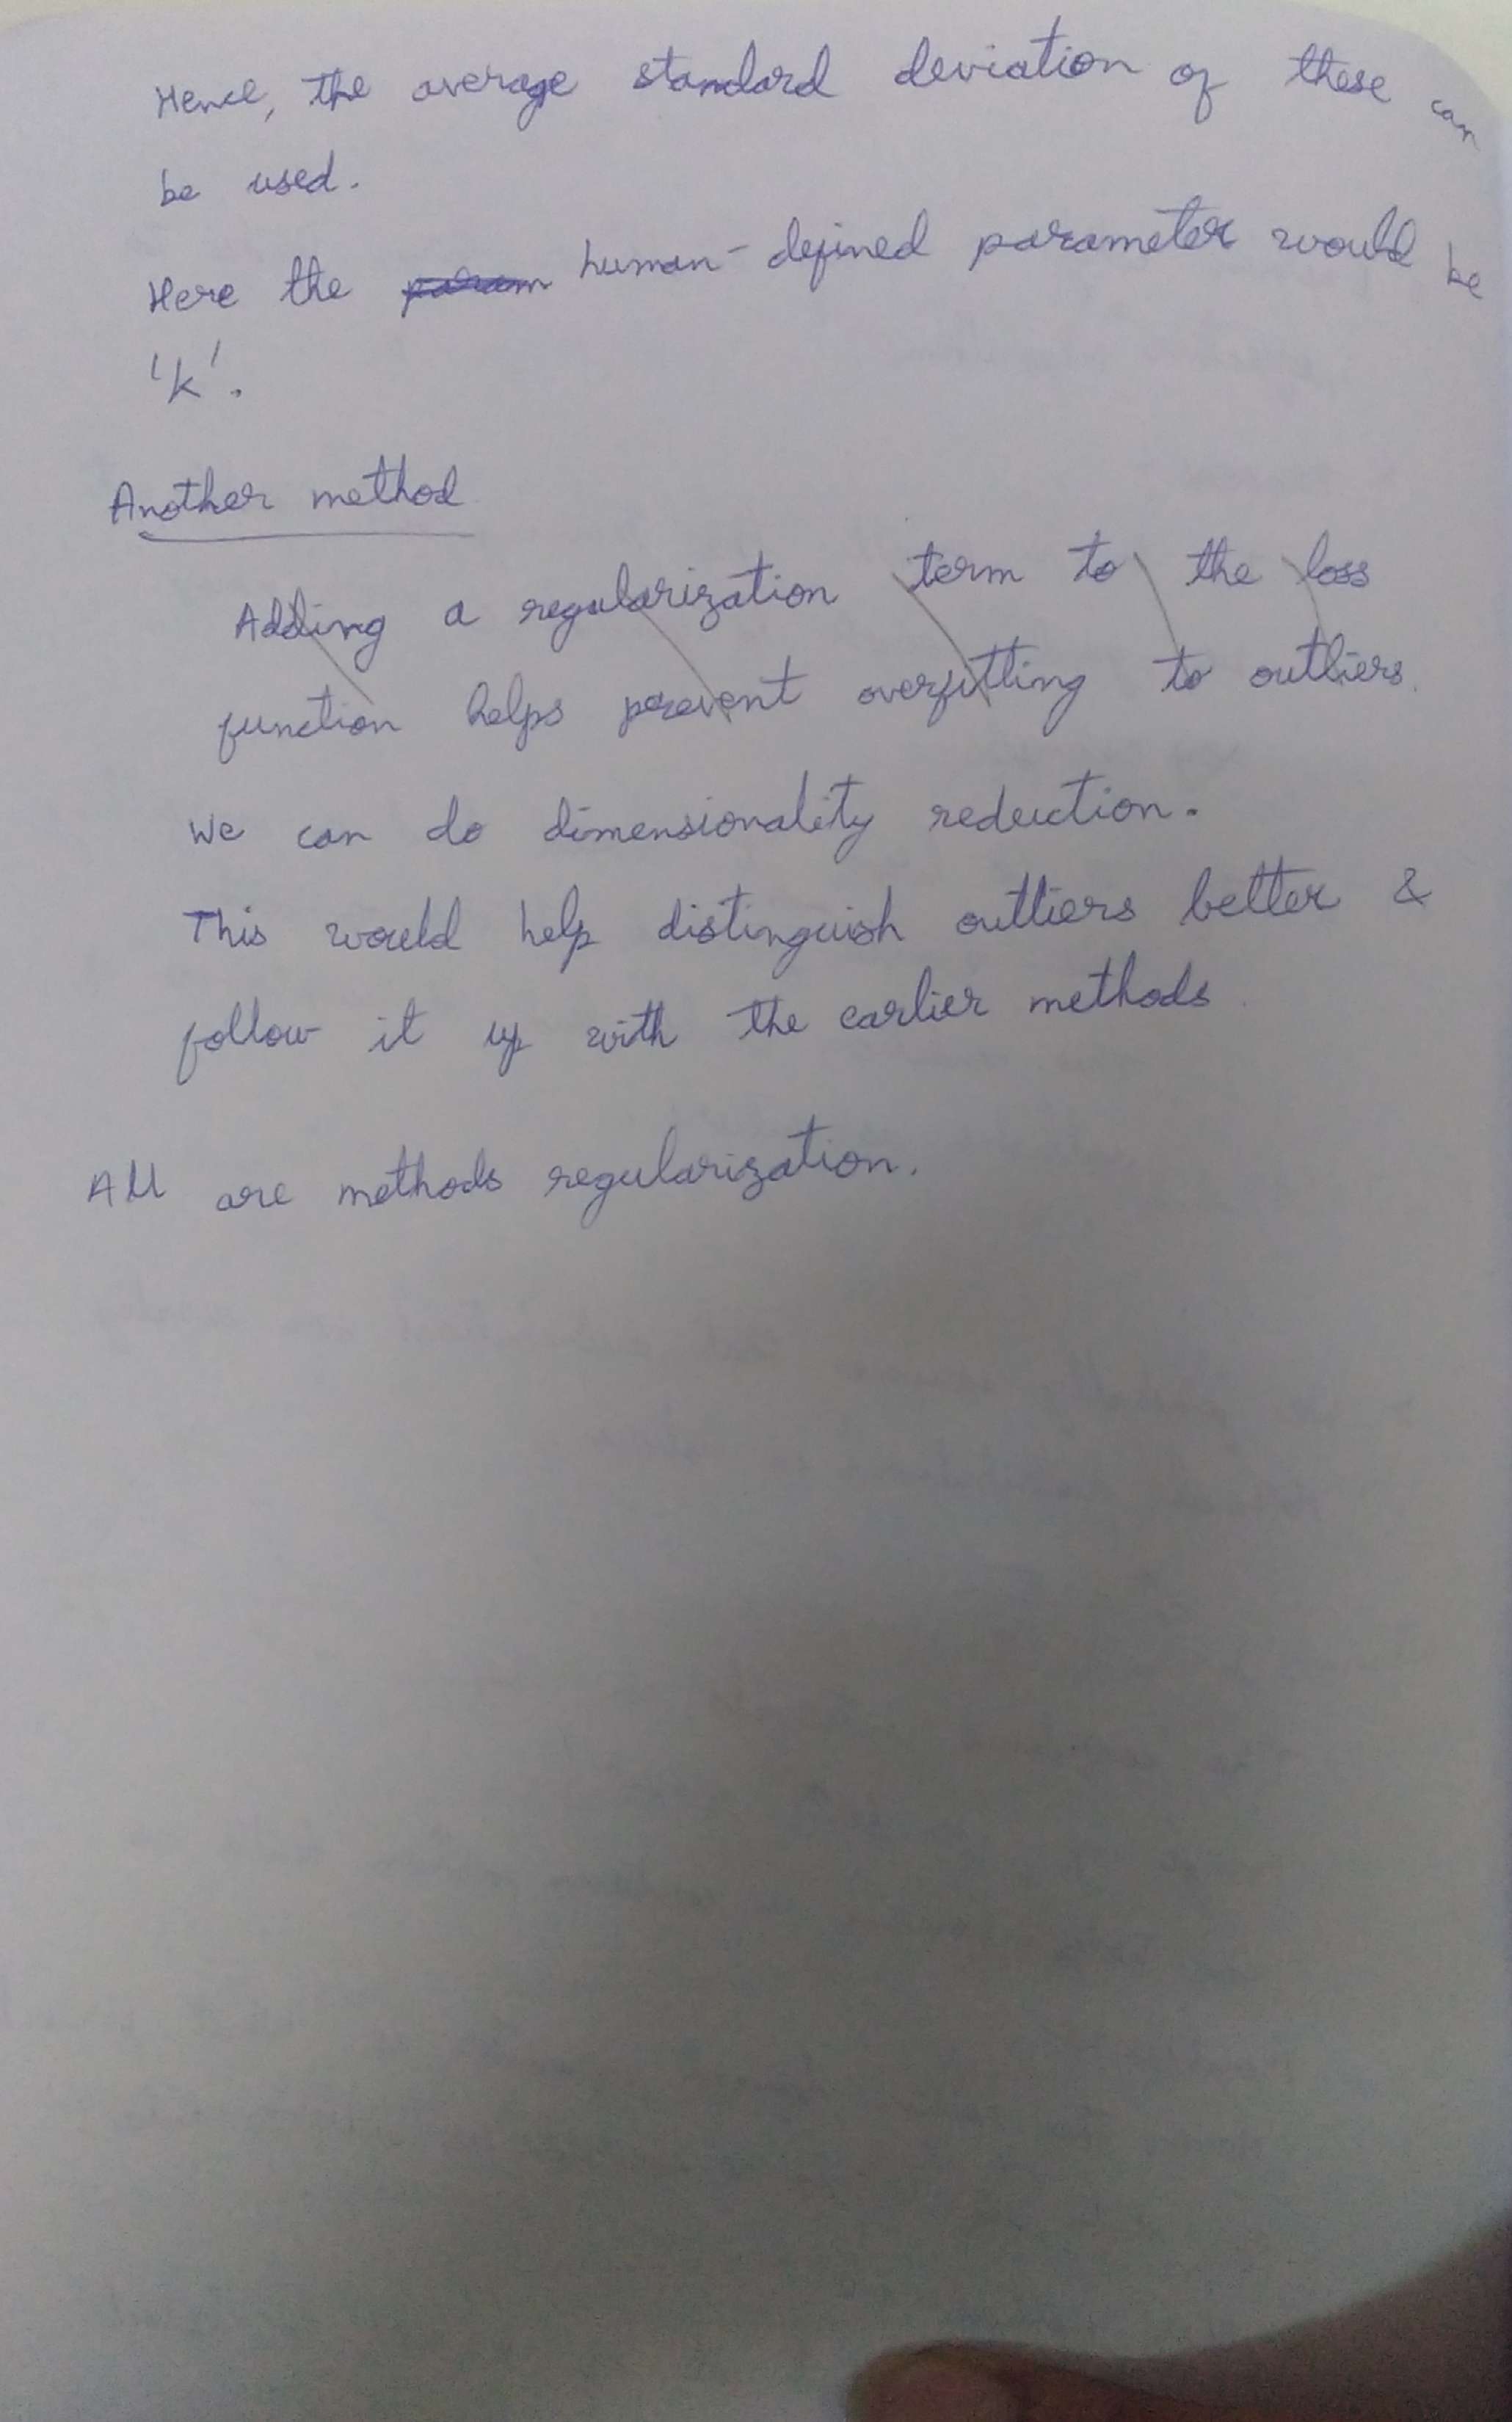 Hence, the average standard deviation of these can
be used.
Here the param human-defined parameter would be
'k'.
Another method
Adding a regularization term to the loss
function helps prevent overfitting to outliers.
We can do dimensionality reduction.
This would help distinguish outliers better &
follow it up with the earlier methods
All are methods regularization.